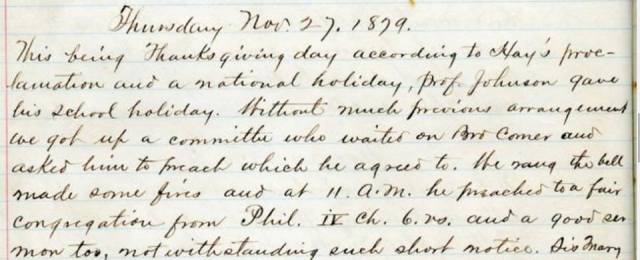 Thursday Nov. 27, 1879.
This being Thanksgiving day according to Hay's proc-
lamation and a national holiday, Prof. Johnson gave
his school holiday. Without much previous arrangement
we got up a committe who waited on Bro Comer and
asked him to preach which he agreed to. We rang the bell
made some fires and at 11. A.M. he preached to a fair
congregation from Phil. IV Ch. 6. vs. and a good ser
mon too, notwithstanding such short notice. Sis Mary